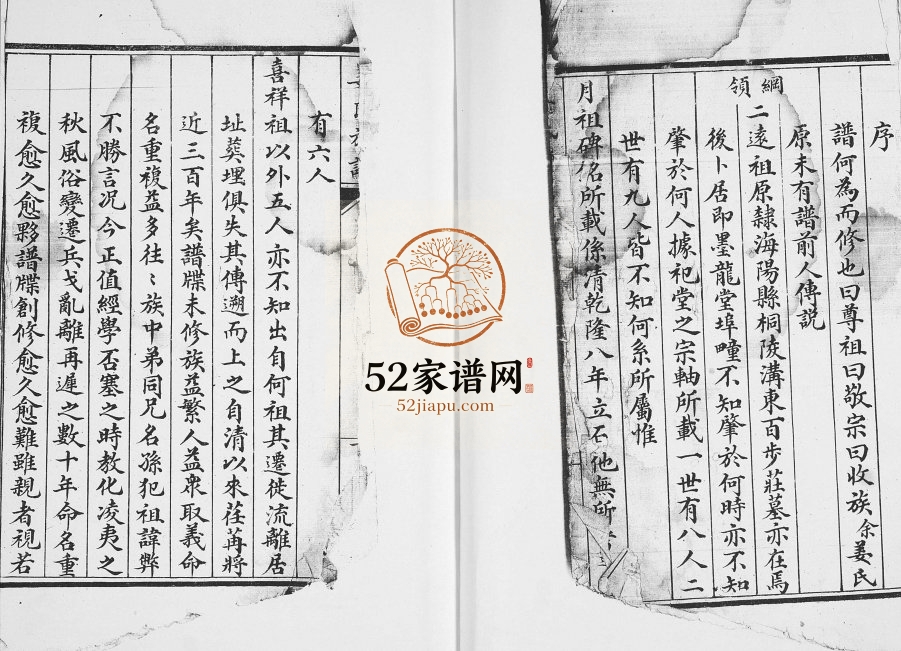 序
譜何為而修也曰尊祖曰敬宗曰收族余姜氏
原未有譜前人傳説
綱領
二遠祖原隸海陽縣桐陵溝東百步莊墓亦在焉
後卜居即墨龍堂埠疃不知肇於何時亦不知
肇於何人據祀堂之宗軸所載一世有八人二
世有九人皆不知何系所屬惟
月祖碑名所載係清乾隆八年立石他無所
有六人
喜祥祖以外五人亦不知出自何祖其遷徙流離居
址葬埋俱失其傳遡而上之自清以來荏苒將
近三百年矣譜牒未修族益繁人益衆取義命
名重複益多往〻族中弟同兄名孫犯祖諱弊
不勝言況今正值經學否塞之時教化凌夷之
秋風俗變遷兵戈亂離再遲之數十年命名重
複愈久愈夥譜牒創修愈久愈難雖親者視若
52家谱网
52jiapu.com